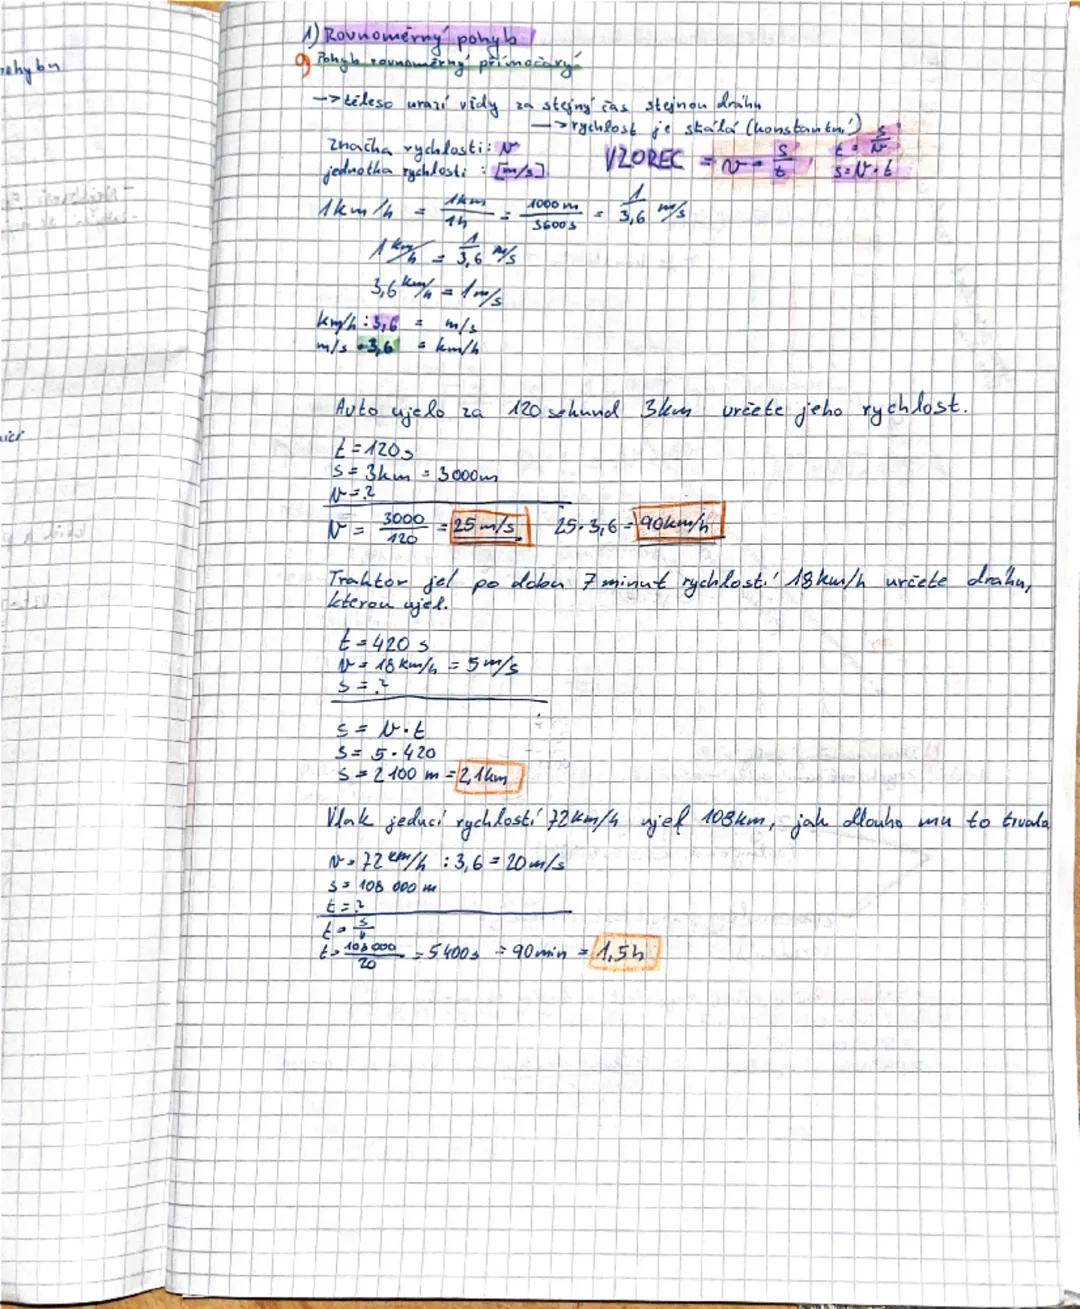 1) Rovnoměrný pohyb
a) Pohyb rovnoměrný přímočarý
-> těleso urazí vždy za stejný čas stejnou dráhu
-> rychlost je stálá (konstantní)
značka rychlosti: v
jednotka rychlosti : [m/s]
VZOREC = v = s/t t = s/v s = v · t
1km/h = 1km/1h = 1000 m/3600 s = 1/3,6 m/s
1 km/h = 1/3,6 m/s
3,6 km/h = 1 m/s
km/h : 3,6 = m/s
m/s · 3,6 = km/h
Auto ujelo za 120 sekund 3km určete jeho rychlost.
t = 120s
s = 3km = 3000m
v = ?
v = 3000/120 = 25 m/s 25 · 3,6 = 90km/h
Traktor jel po dobu 7 minut rychlostí 18km/h určete dráhu,
kterou ujel.
t = 420 s
v = 18 km/h = 5 m/s
s = ?
s = v · t
s = 5 · 420
s = 2 100 m = 2,1km
Vlak jeducí rychlostí 72km/h ujel 108km, jak dlouho mu to trvalo
v = 72 km/h : 3,6 = 20 m/s
s = 108 000 m
t = ?
t = s/v
t = 108 000/20 = 5 400s = 90 min = 1,5h